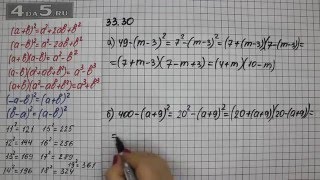 4DA5.RU
(a+b)²=a²+2ab+b²
(a-b)²=a²-2ab+b²
(a-b)(a+b)=a²-b²
(-a-b)²=(a+b)²
(b-a)²=(a-b)²
11²=121 15²=225
12²=144 16²=256
13²=169 17²=289
14²=196 18²=324
19²=361
33.30
а) 49-(m-3)²=7²-(m-3)²=(7+(m-3))(7-(m-3))=
=(7+m-3)(7-m+3)=(4+m)(10-m)
б) 400-(a+9)²=20²-(a+9)²=(20+(a+9))(20-(a+9))=
=